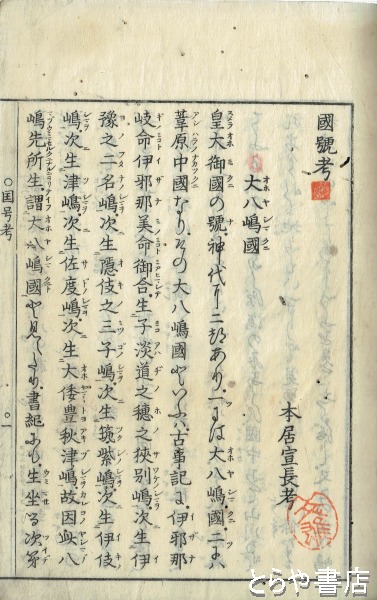 國號考
本居宣長考
大八嶋國
皇大御國の號、神代に二ツあり、一には大八嶋國、二には
葦原中國なり、その大八嶋國といふは、古事記に、伊邪那
岐命伊邪那美命御合生子淡道之穂之狹別嶋、次生伊
豫之二名嶋、次生隱伎之三子嶋、次生筑紫嶋、次生伊伎
嶋、次生津嶋、次生佐度嶋、次生大倭豊秋津嶋、故因此八
嶋先所生謂大八嶋國と見えたり、書紀にも生坐る次第
○国号考
○一
とらや書店